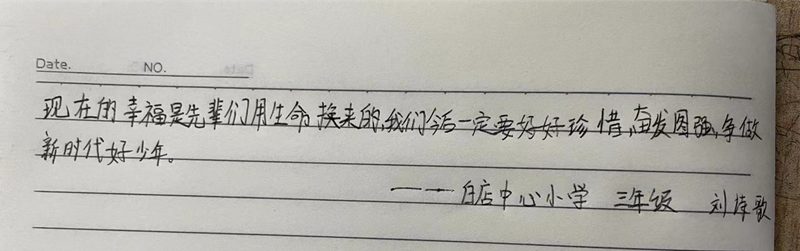 Date. NO.
现在的幸福是先辈们用生命换来的,我们今后一定要好好珍惜,奋发图强,争做
新时代好少年。
——白店中心小学 三年级 刘诗歌